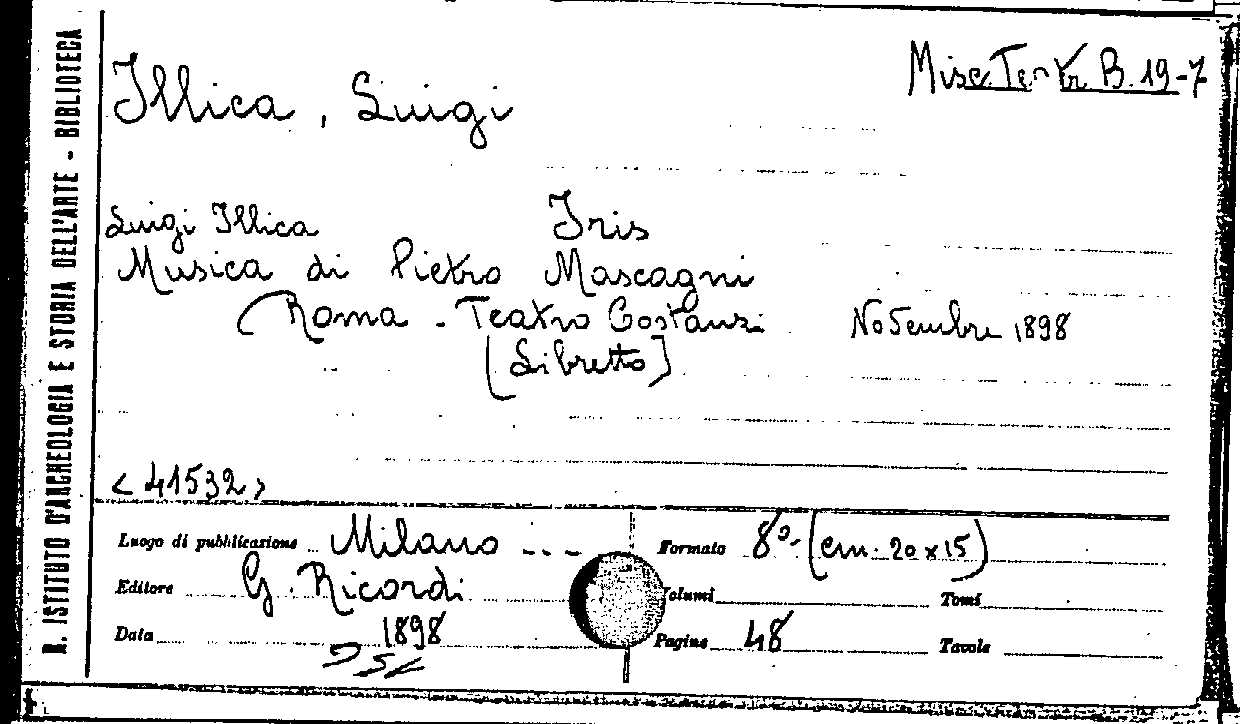 R. ISTITUTO D'ARCHEOLOGIA E STORIA DELL'ARTE - BIBLIOTECA
Misc. Teatr. B. 19-7
Illica, Luigi
Luigi Illica Iris
Musica di Pietro Mascagni
Roma - Teatro Costanzi Novembre 1898
[Libretto]
<41532>
Luogo di pubblicazione Milano Formato 8º- (cm. 20x15)
Editore G. Ricordi Volumi Tomi
Data 1898 Pagine 48 Tavole